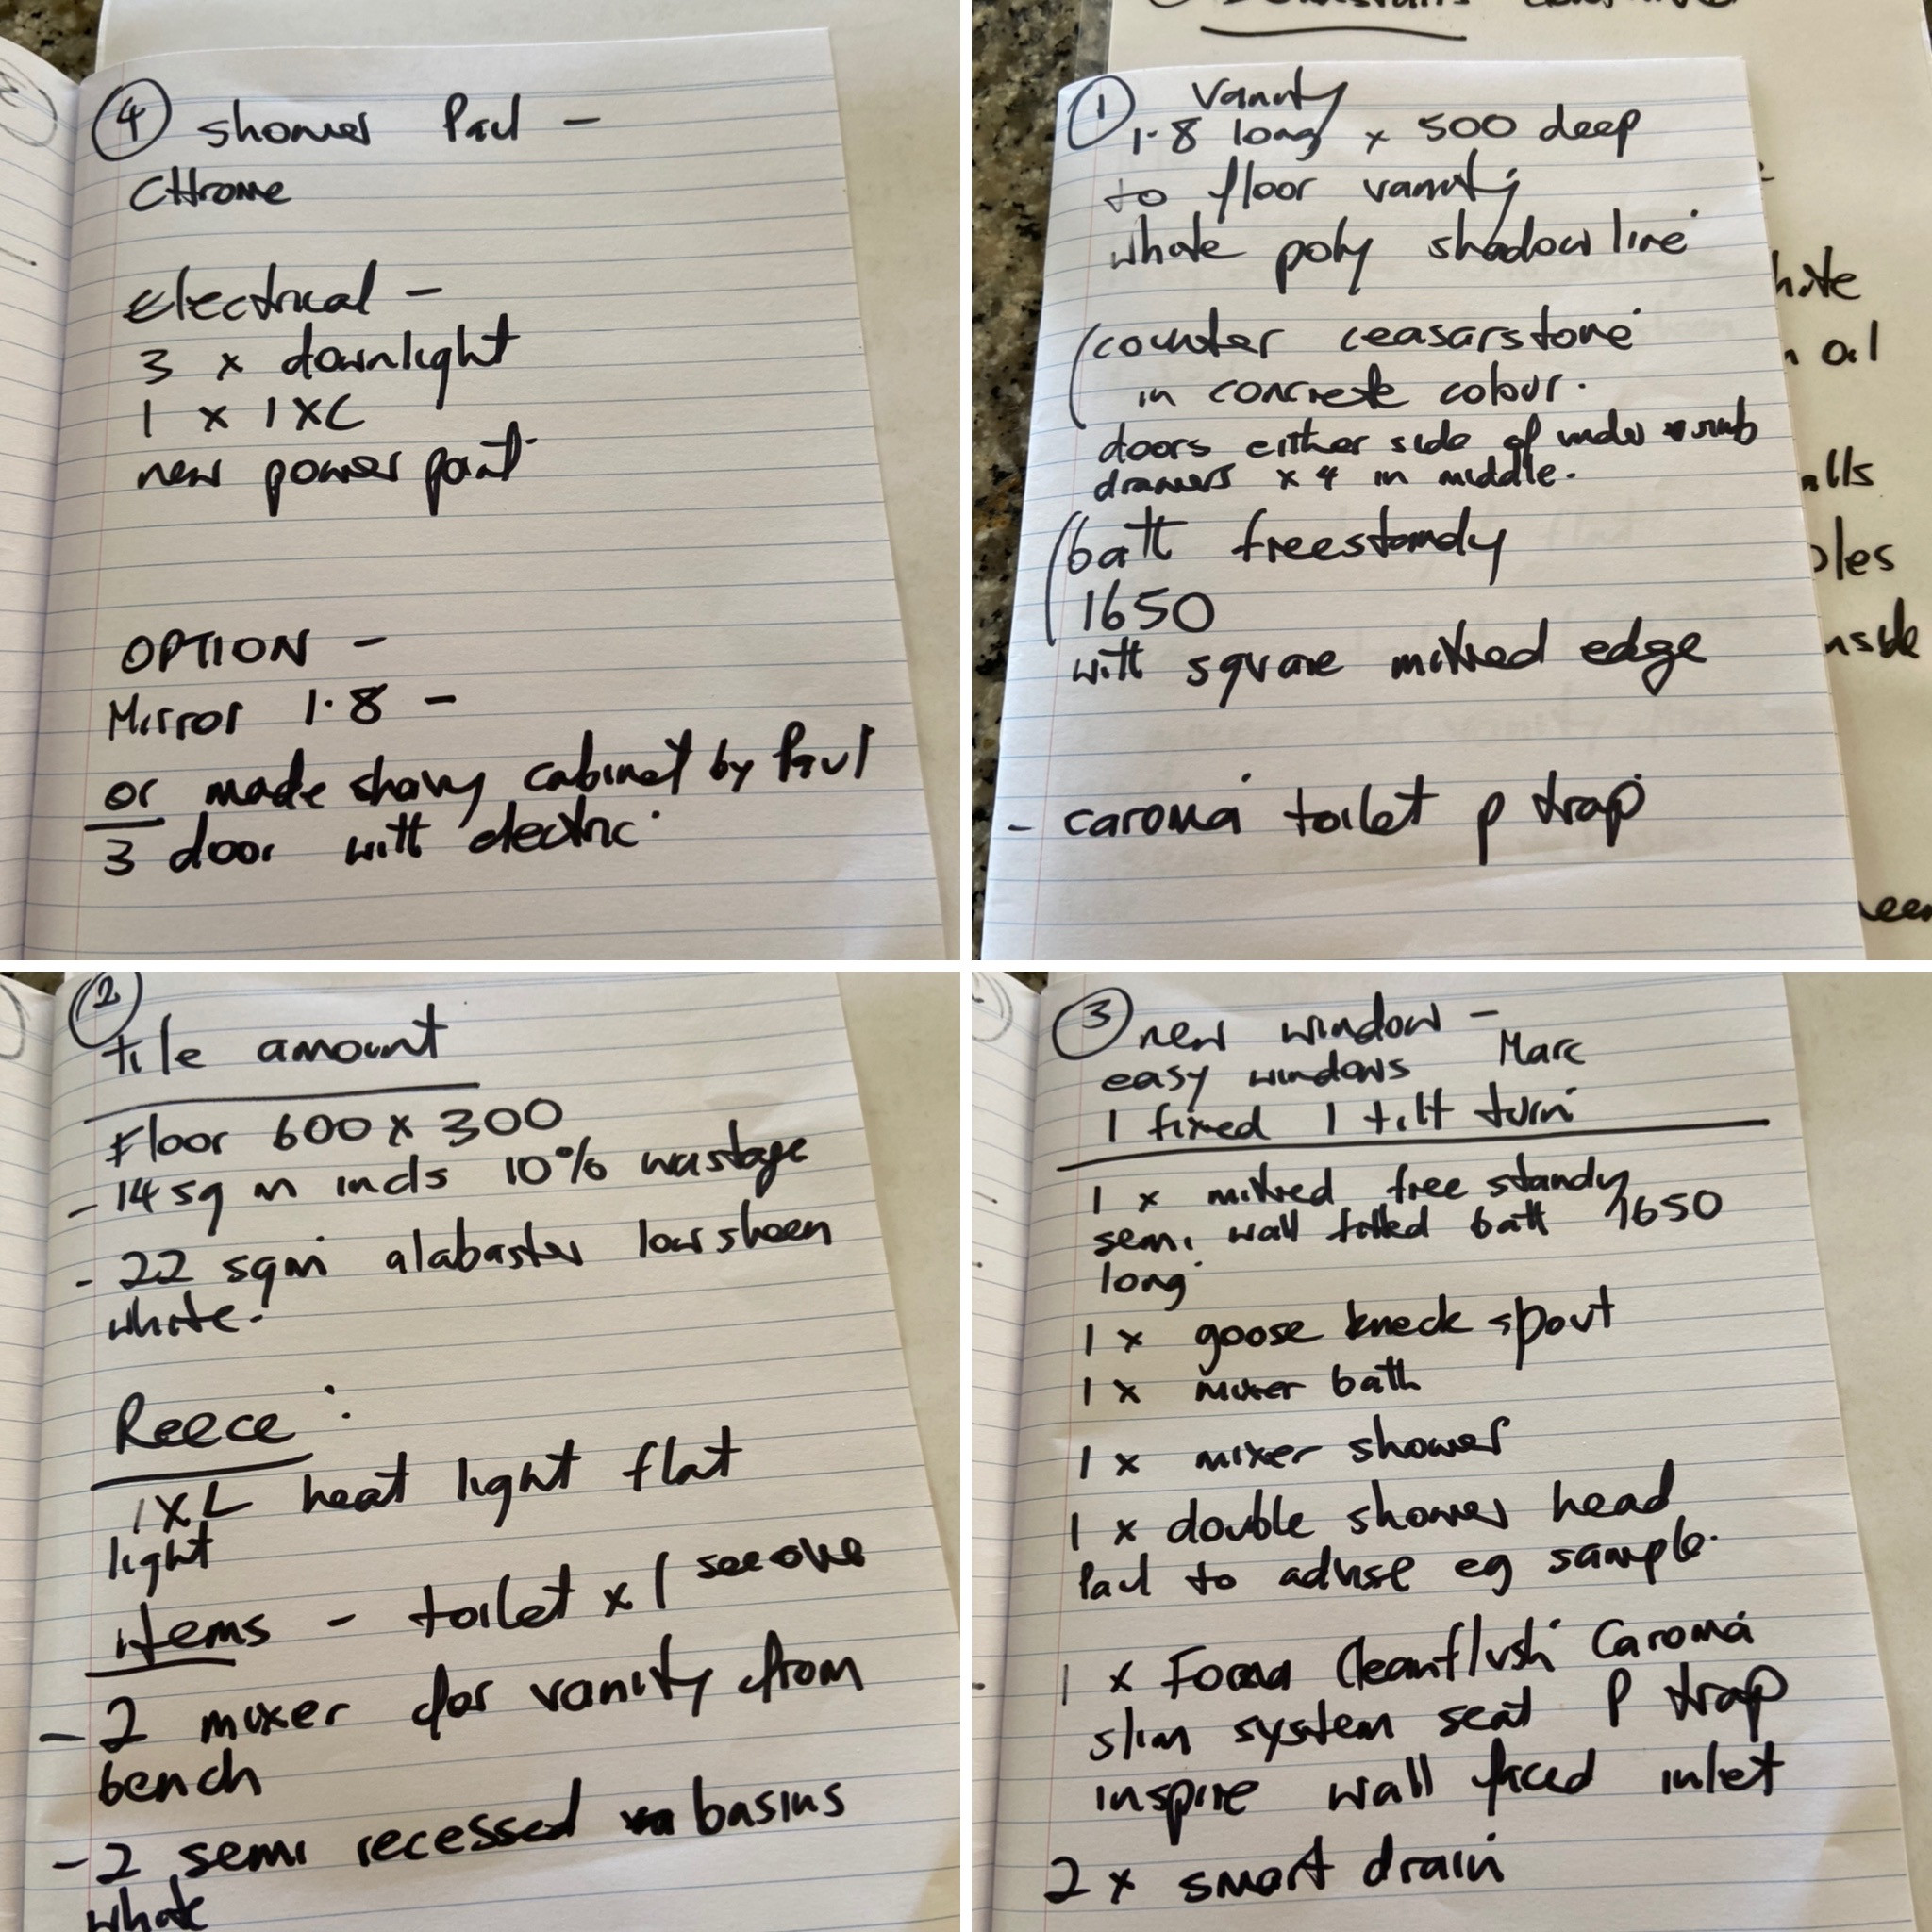 ④ shower Paul –
CHrome
Electrical –
3 x downlight
1 x 1XL
new power point
OPTION –
Mirror 1.8 –
or made shavy cabinet by Paul
3 door with electric
① Vanity
1.8 long x 500 deep
to floor vanity
white poly shadow line
(counter ceasarstone
in concrete colour.
doors either side of under
drawers x 4 in middle.
(bath freestandy
1650
with square mitred edge
- caroma toilet p trap
hite
oil
alls
oles
nside
een
②
tile amount
Floor 600 x 300
- 14 sq m incls 10% wastage
- 22 sqm alabaster low sheen
white.
Reece :
1XL heat light flat
light
items - toilet x 1 see over
- 2 mixer for vanity from
bench
- 2 semi recessed basins
white
③ new window –
easy windows Marc
1 fixed 1 tilt turn
1 x mitred free standy
semi wall fitted bath 1650
long
1 x goose kneck spout
1 x mixer bath
1 x mixer shower
1 x double shower head
Paul to advise eg sample.
1 x Forma Cleanflush Caroma
slim system seat P trap
inspire wall faced inlet
2 x smart drain